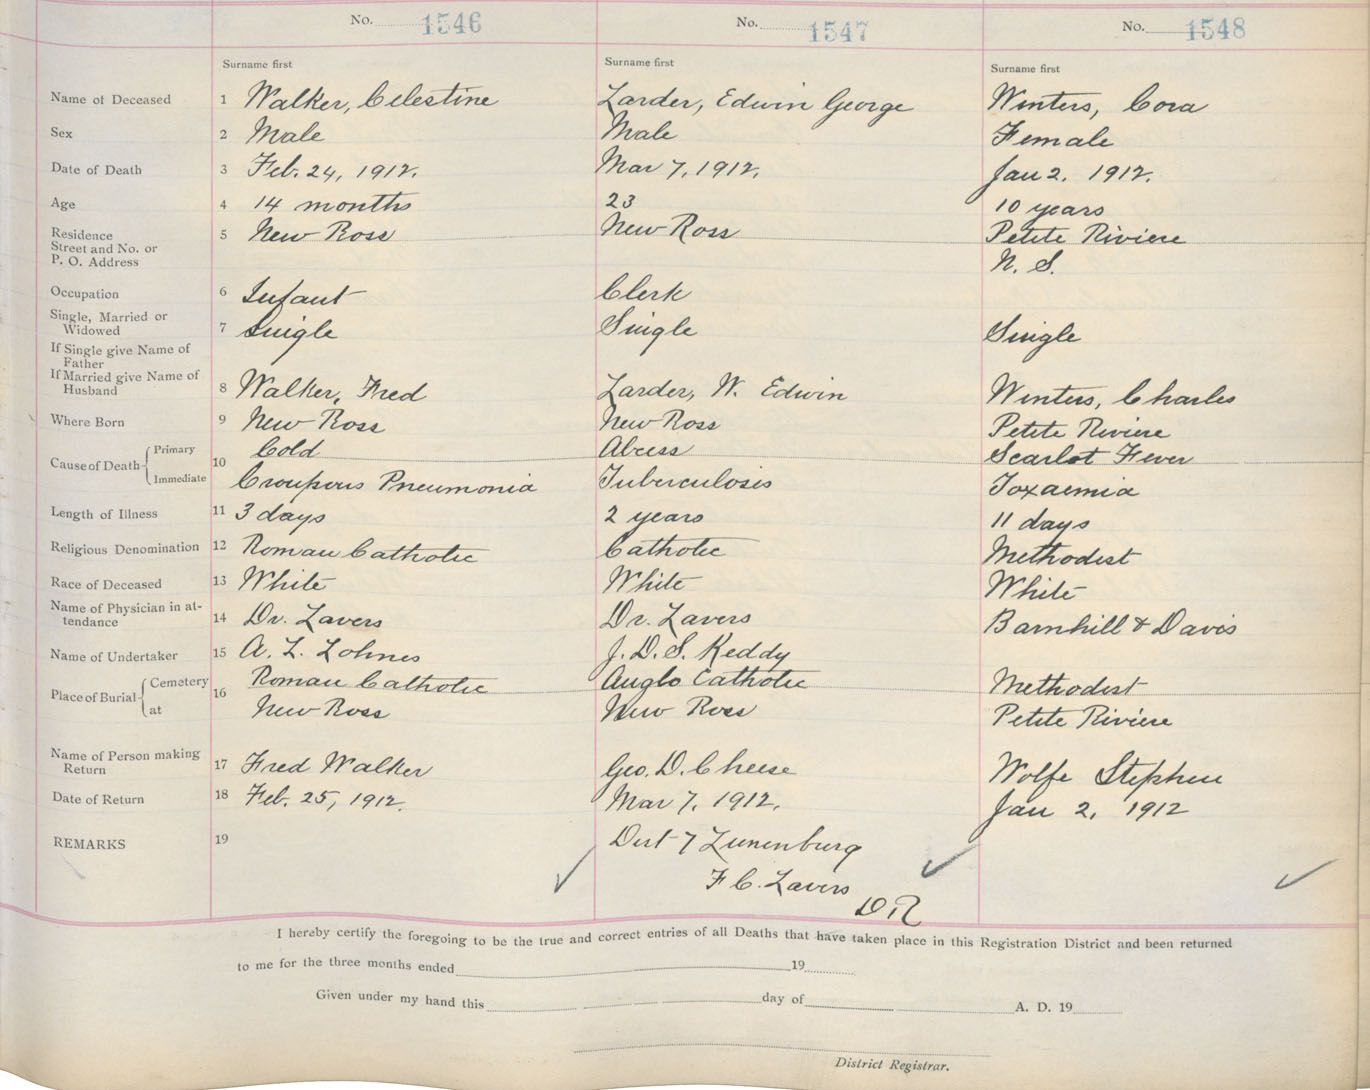 No. 1546 No. 1547 No. 1548
Surname first Surname first Surname first
Name of Deceased 1 Walker, Celestine Larder, Edwin George Winters, Cora
Sex 2 Male Male Female
Date of Death 3 Feb. 24, 1912. Mar 7, 1912. Jan 2. 1912.
Age 4 14 months 23 10 years
Residence 5 New Ross New Ross Petite Riviere
Street and No. or
P. O. Address N. S.
Occupation 6 Infant Clerk
Single, Married or
Widowed 7 Single Single Single
If Single give Name of
Father
If Married give Name of
Husband 8 Walker, Fred Larder, W. Edwin Winters, Charles
Where Born 9 New Ross New Ross Petite Riviere
Cause of Death Primary 10 Cold Abcess Scarlot Fever
Immediate Croupous Pneumonia Tuberculosis Toxaemia
Length of Illness 11 3 days 2 years 11 days
Religious Denomination 12 Roman Catholic Catholic Methodist
Race of Deceased 13 White White White
Name of Physician in at-
tendance 14 Dr. Lavers Dr. Lavers Barnhill & Davis
Name of Undertaker 15 A. L. Lohnes J. D. S. Keddy
Place of Burial Cemetery 16 Roman Catholic Anglo Catholic Methodist
at New Ross New Ross Petite Riviere
Name of Person making
Return 17 Fred Walker Geo. D. Cheese Wolfe Stephen
Date of Return 18 Feb. 25, 1912. Mar 7, 1912. Jan 2, 1912
REMARKS 19 Dist 7 Lunenburg
F C. Lavers
D.R
I hereby certify the foregoing to be the true and correct entries of all Deaths that have taken place in this Registration District and been returned
to me for the three months ended 19
Given under my hand this day of A. D. 19
District Registrar.